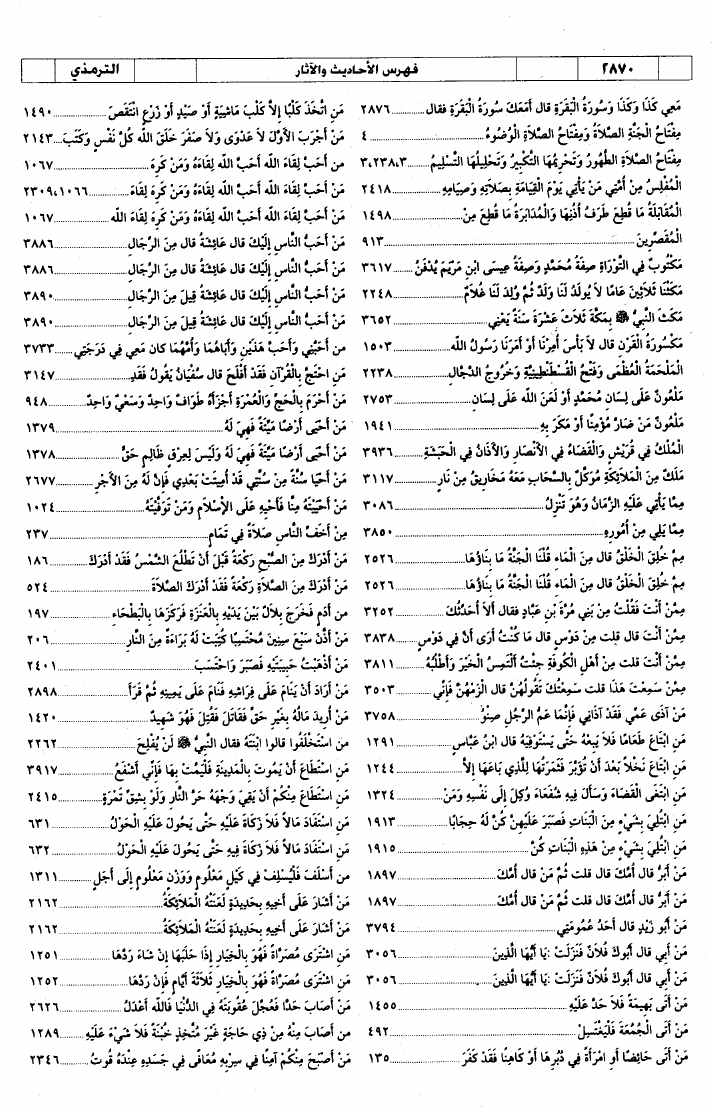 ٢٨٧٠ فهرس الأحاديث والآثار الترمذي
مَعِي كَذَا وَكَذَا وَسُورَةُ الْبَقَرَةِ قال أَمَعَكَ سُورَةُ الْبَقَرَةِ فقال ٢٨٧٦
مِفْتَاحُ الْجَنَّةِ الصَّلاَةُ وَمِفْتَاحُ الصَّلاَةِ الْوُضُوءُ ٤
مِفْتَاحُ الصَّلاَةِ الطُّهُورُ وَتَحْرِيمُهَا التَّكْبِيرُ وَتَحْلِيلُهَا التَّسْلِيمُ ٣،٢٣٨،٣
الْمُفْلِسُ مِنْ أُمَّتِي مَنْ يَأْتِي يَوْمَ الْقِيَامَةِ بِصَلاَتِهِ وَصِيَامِهِ ٢٤١٨
الْمُقَابَلَةُ مَا قُطِعَ طَرَفُ أُذُنِهَا وَالْمُدَابَرَةُ مَا قُطِعَ مِنْ ١٤٩٨
الْمُقَصِّرِينَ ٩١٣
مَكْتُوبٌ فِي التَّوْرَاةِ صِفَةُ مُحَمَّدٍ وَصِفَةُ عِيسَى ابْنِ مَرْيَمَ يُدْفَنُ ٣٦١٧
مَكَثْنَا ثَلاَثِينَ عَامًا لاَ يُولَدُ لَنَا وَلَدٌ ثُمَّ وُلِدَ لَنَا غُلاَمٌ ٢٢٤٨
مَكَثَ النَّبِيُّ ﷺ بِمَكَّةَ ثَلاَثَ عَشْرَةَ سَنَةً يَعْنِي ٣٦٥٢
مَكْسُورَةُ الْقَرْنِ قال لاَ بَأْسَ أُمِرْنَا أَوْ أَمَرَنَا رَسُولُ اللَّه ١٥٠٣
الْمَلْحَمَةُ الْعُظْمَى وَفَتْحُ الْقُسْطَنْطِينِيَّةِ وَخُرُوجُ الدَّجَّالِ ٢٢٣٨
مَلْعُونٌ عَلَى لِسَانِ مُحَمَّدٍ أَوْ لَعَنَ اللَّه عَلَى لِسَانِ ٢٧٥٣
مَلْعُونٌ مَنْ ضَارَّ مُؤْمِنًا أَوْ مَكَرَ بِهِ ١٩٤١
الْمُلْكُ فِي قُرَيْشٍ وَالْقَضَاءُ فِي الأَنْصَارِ وَالأَذَانُ فِي الْحَبَشَةِ ٣٩٣٦
مَلَكٌ مِنَ الْمَلاَئِكَةِ مُوَكَّلٌ بِالسَّحَابِ مَعَهُ مَخَارِيقُ مِنْ نَارٍ ٣١١٧
مِمَّا يَأْتِي عَلَيْهِ الزَّمَانُ وَهُوَ تَنْزِلُ ٣٠٨٦
مِمَّا يَلِي مِنْ أُمُورِهِ ٣٨٥٠
مِمَّ خُلِقَ الْخَلْقُ قال مِنَ الْمَاءِ قُلْنَا الْجَنَّةُ مَا بِنَاؤُهَا ٢٥٢٦
مِمَّ خُلِقَ الْخَلْقُ قال مِنَ الْمَاءِ قُلْنَا الْجَنَّةُ مَا بِنَاؤُهَا ٢٥٢٦
مِمَّنْ أَنْتَ فَقُلْتُ مِنْ بَنِي مُرَّةَ بْنِ عُبَادٍ فقال أَلاَ أُحَدِّثُكَ ٣٢٥٢
مِمَّنْ أَنْتَ قال قلت مِنْ دَوْسٍ قال مَا كُنْتُ أَرَى أَنَّ فِي دَوْسٍ ٣٨٣٨
مِمَّنْ أَنْتَ قلت مِنْ أَهْلِ الْكُوفَةِ جِئْتُ أَلْتَمِسُ الْخَيْرَ وَأَطْلُبُهُ ٣٨١١
مِمَّنْ سَمِعْتَ هَذَا قلت سَمِعْتُكَ تَقُولُهُنَّ قال الْزَمْهُنَّ فَإِنِّي ٣٥٠٣
مَنْ آذَى عَمِّي فَقَدْ آذَانِي فَإِنَّمَا عَمُّ الرَّجُلِ صِنْوُ ٣٧٥٨
مَنِ ابْتَاعَ طَعَامًا فَلاَ يَبِعْهُ حَتَّى يَسْتَوْفِيَهُ قال ابْنُ عَبَّاسٍ ١٢٩١
مَنِ ابْتَاعَ نَخْلاً بَعْدَ أَنْ تُؤَبَّرَ فَثَمَرَتُهَا لِلَّذِي بَاعَهَا إِلاَّ ١٢٤٤
مَنِ ابْتَغَى الْقَضَاءَ وَسَأَلَ فِيهِ شُفَعَاءَ وُكِلَ إِلَى نَفْسِهِ وَمَنْ ١٣٢٤
مَنِ ابْتُلِيَ بِشَيْءٍ مِنَ الْبَنَاتِ فَصَبَرَ عَلَيْهِنَّ كُنَّ لَهُ حِجَابًا ١٩١٣
مَنِ ابْتُلِيَ بِشَيْءٍ مِنْ هَذِهِ الْبَنَاتِ كُنَّ ١٩١٥
مَنْ أَبَرُّ قال أُمَّكَ قال قلت ثُمَّ مَنْ قال أُمَّكَ ١٨٩٧
مَنْ أَبَرُّ قال أُمَّكَ قال قلت ثُمَّ مَنْ قال أُمَّكَ ١٨٩٧
مَنْ أَبُو زَيْدٍ قال أَحَدُ عُمُومَتِي ٣٧٩٤
مَنْ أَبِي قال أَبُوكَ فُلاَنٌ فَنَزَلَتْ ﴿يَا أَيُّهَا الَّذِينَ ٣٠٥٦
مَنْ أَبِي قال أَبُوكَ فُلاَنٌ فَنَزَلَتْ ﴿يَا أَيُّهَا الَّذِينَ ٣٠٥٦
مَنْ أَتَى بَهِيمَةً فَلاَ حَدَّ عَلَيْهِ ١٤٥٥
مَنْ أَتَى الْجُمُعَةَ فَلْيَغْتَسِلْ ٤٩٢
مَنْ أَتَى حَائِضًا أَوِ امْرَأَةً فِي دُبُرِهَا أَوْ كَاهِنًا فَقَدْ كَفَرَ ١٣٥
مَنِ اتَّخَذَ كَلْبًا إِلاَّ كَلْبَ مَاشِيَةٍ أَوْ صَيْدٍ أَوْ زَرْعٍ انْتَقَصَ ١٤٩٠
مَنْ أَجْرَبَ الأَوَّلَ لاَ عَدْوَى وَلاَ صَفَرَ خَلَقَ اللَّه كُلَّ نَفْسٍ وَكَتَبَ ٢١٤٣
من أَحَبَّ لِقَاءَ اللَّه أَحَبَّ اللَّه لِقَاءَهُ وَمَنْ كَرِهَ ١٠٦٧
مَنْ أَحَبَّ لِقَاءَ اللَّه أَحَبَّ اللَّه لِقَاءَهُ وَمَنْ كَرِهَ لِقَاءَ ٢٣٠٩،١٠٦٦
مَنْ أَحَبَّ لِقَاءَ اللَّه أَحَبَّ اللَّه لِقَاءَهُ وَمَنْ كَرِهَ لِقَاءَ اللَّه ١٠٦٧
مَنْ أَحَبُّ النَّاسِ إِلَيْكَ قال عَائِشَةُ قال مِنَ الرِّجَالِ ٣٨٨٦
مَنْ أَحَبُّ النَّاسِ إِلَيْكَ قال عَائِشَةُ قال مِنَ الرِّجَالِ ٣٨٨٦
مَنْ أَحَبُّ النَّاسِ إِلَيْكَ قال عَائِشَةُ قِيلَ مِنَ الرِّجَالِ ٣٨٩٠
مَنْ أَحَبُّ النَّاسِ إِلَيْكَ قال عَائِشَةُ قِيلَ مِنَ الرِّجَالِ ٣٨٩٠
من أَحَبَّنِي وَأَحَبَّ هَذَيْنِ وَأَبَاهُمَا وَأُمَّهُمَا كان مَعِي فِي دَرَجَتِي ٣٧٣٣
مَنِ احْتَجَّ بِالْقُرْآنِ فَقَدْ أَفْلَحَ قال سُفْيَانُ يَقُولُ فَقَدِ ٣١٤٧
مَنْ أَحْرَمَ بِالْحَجِّ وَالْعُمْرَةِ أَجْزَأَهُ طَوَافٌ وَاحِدٌ وَسَعْيٌ وَاحِدٌ ٩٤٨
مَنْ أَحْيَى أَرْضًا مَيِّتَةً فَهِيَ لَهُ ١٣٧٩
مَنْ أَحْيَى أَرْضًا مَيِّتَةً فَهِيَ لَهُ وَلَيْسَ لِعِرْقٍ ظَالِمٍ حَقٌّ ١٣٧٨
مَنْ أَحْيَا سُنَّةً مِنْ سُنَّتِي قَدْ أُمِيتَتْ بَعْدِي فَإِنَّ لَهُ مِنَ الأَجْرِ ٢٦٧٧
مَنْ أَحْيَيْتَهُ مِنَّا فَأَحْيِهِ عَلَى الإِسْلاَمِ وَمَنْ تَوَفَّيْتَهُ ١٠٢٤
مِنْ أَخَفِّ النَّاسِ صَلاَةً فِي تَمَامٍ ٢٣٧
مَنْ أَدْرَكَ مِنَ الصُّبْحِ رَكْعَةً قَبْلَ أَنْ تَطْلُعَ الشَّمْسُ فَقَدْ أَدْرَكَ ١٨٦
مَنْ أَدْرَكَ مِنَ الصَّلاَةِ رَكْعَةً فَقَدْ أَدْرَكَ الصَّلاَةَ ٥٢٤
من أَدَمٍ فَخَرَجَ بِلاَلٌ بَيْنَ يَدَيْهِ بِالْعَنَزَةِ فَرَكَزَهَا بِالْبَطْحَاءِ ١٩٧
مَنْ أَذَّنَ سَبْعَ سِنِينَ مُحْتَسِبًا كُتِبَتْ لَهُ بَرَاءَةٌ مِنَ النَّارِ ٢٠٦
مَنْ أَذْهَبْتُ حَبِيبَتَيْهِ فَصَبَرَ وَاحْتَسَبَ ٢٤٠١
مَنْ أَرَادَ أَنْ يَنَامَ عَلَى فِرَاشِهِ فَنَامَ عَلَى يَمِينِهِ ثُمَّ قَرَأَ ٢٨٩٨
مَنْ أُرِيدَ مَالُهُ بِغَيْرِ حَقٍّ فَقَاتَلَ فَقُتِلَ فَهُوَ شَهِيدٌ ١٤٢٠
من اسْتَخْلَفُوا قالوا ابْنَتَهُ فقال النَّبِيُّ ﷺ لَنْ يُفْلِحَ ٢٢٦٢
مَنِ اسْتَطَاعَ أَنْ يَمُوتَ بِالْمَدِينَةِ فَلْيَمُتْ بِهَا فَإِنِّي أَشْفَعُ ٣٩١٧
مَنِ اسْتَطَاعَ مِنْكُمْ أَنْ يَقِيَ وَجْهَهُ حَرَّ النَّارِ وَلَوْ بِشِقِّ تَمْرَةٍ ٢٤١٥
مَنِ اسْتَفَادَ مَالاً فَلاَ زَكَاةَ عَلَيْهِ حَتَّى يَحُولَ عَلَيْهِ الْحَوْلُ ٦٣١
مَنِ اسْتَفَادَ مَالاً فَلاَ زَكَاةَ فِيهِ حَتَّى يَحُولَ عَلَيْهِ الْحَوْلُ ٦٣٢
من أَسْلَفَ فَلْيُسْلِفْ فِي كَيْلٍ مَعْلُومٍ وَوَزْنٍ مَعْلُومٍ إِلَى أَجَلٍ ١٣١١
مَنْ أَشَارَ عَلَى أَخِيهِ بِحَدِيدَةٍ لَعَنَتْهُ الْمَلاَئِكَةُ ٢١٦٢
مَنْ أَشَارَ عَلَى أَخِيهِ بِحَدِيدَةٍ لَعَنَتْهُ الْمَلاَئِكَةُ ٢١٦٢
مَنِ اشْتَرَى مُصَرَّاةً فَهُوَ بِالْخِيَارِ إِذَا حَلَبَهَا إِنْ شَاءَ رَدَّهَا ١٢٥١
مَنِ اشْتَرَى مُصَرَّاةً فَهُوَ بِالْخِيَارِ ثَلاَثَةَ أَيَّامٍ فَإِنْ رَدَّهَا ١٢٥٢
مَنْ أَصَابَ حَدًّا فَعُجِّلَ عُقُوبَتَهُ فِي الدُّنْيَا فَاللَّه أَعْدَلُ ٢٦٢٦
من أَصَابَ مِنْهُ مِنْ ذِي حَاجَةٍ غَيْرَ مُتَّخِذٍ خُبْنَةً فَلاَ شَيْءَ عَلَيْهِ ١٢٨٩
مَنْ أَصْبَحَ مِنْكُمْ آمِنًا فِي سِرْبِهِ مُعَافًى فِي جَسَدِهِ عِنْدَهُ قُوتُ ٢٣٤٦